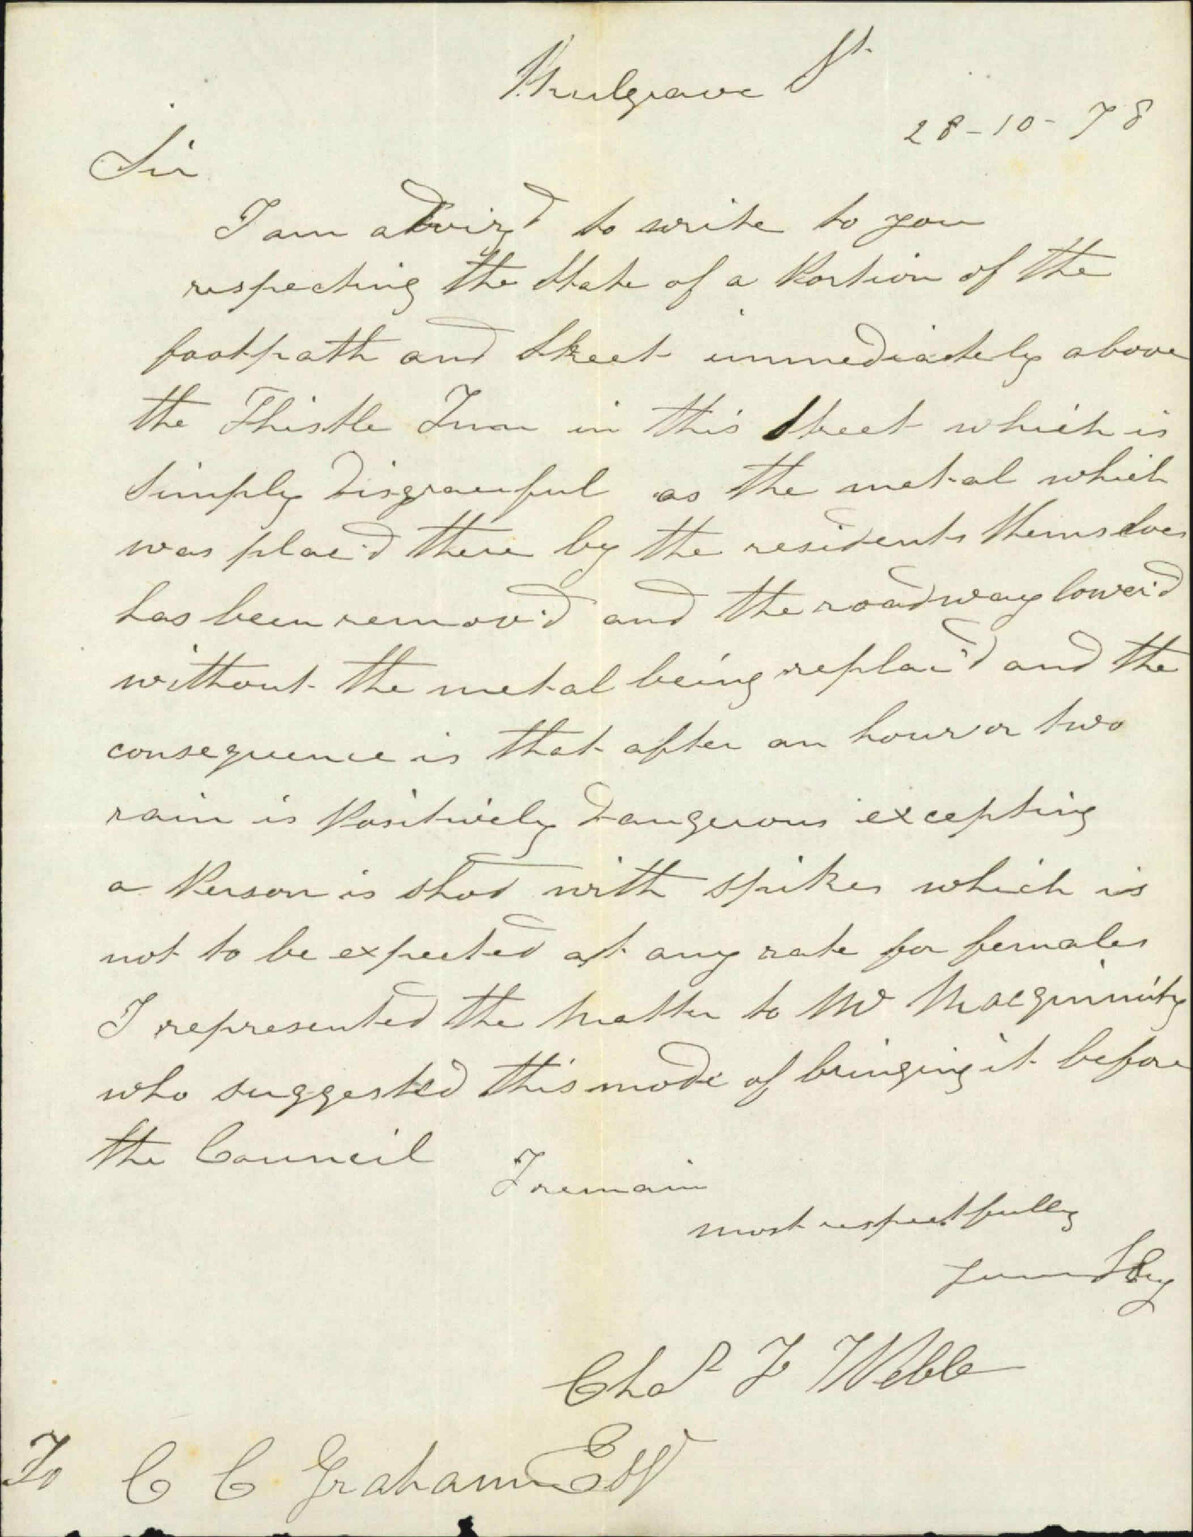 Mulgrave St
28-10-78
Sir
I am adviz'd to write to you
respecting the State of a Portion of the
footpath and Street immediately above
the Thistle Inn in this Street which is
simply disgraceful as the metal which
was plac'd there by the residents themselves
has been remov'd and the roadway lower'd
without the metal being replac'd and the
consequence is that after an hour or two
rain is Positively dangerous excepting
a Person is shod with spikes which is
not to be expected at any rate for females
I represented the matter to Mr Macginnity
who suggested this mode of bringing it before
the Council
I remain
most respectfully
Chas F Webb
To C C Graham Esq